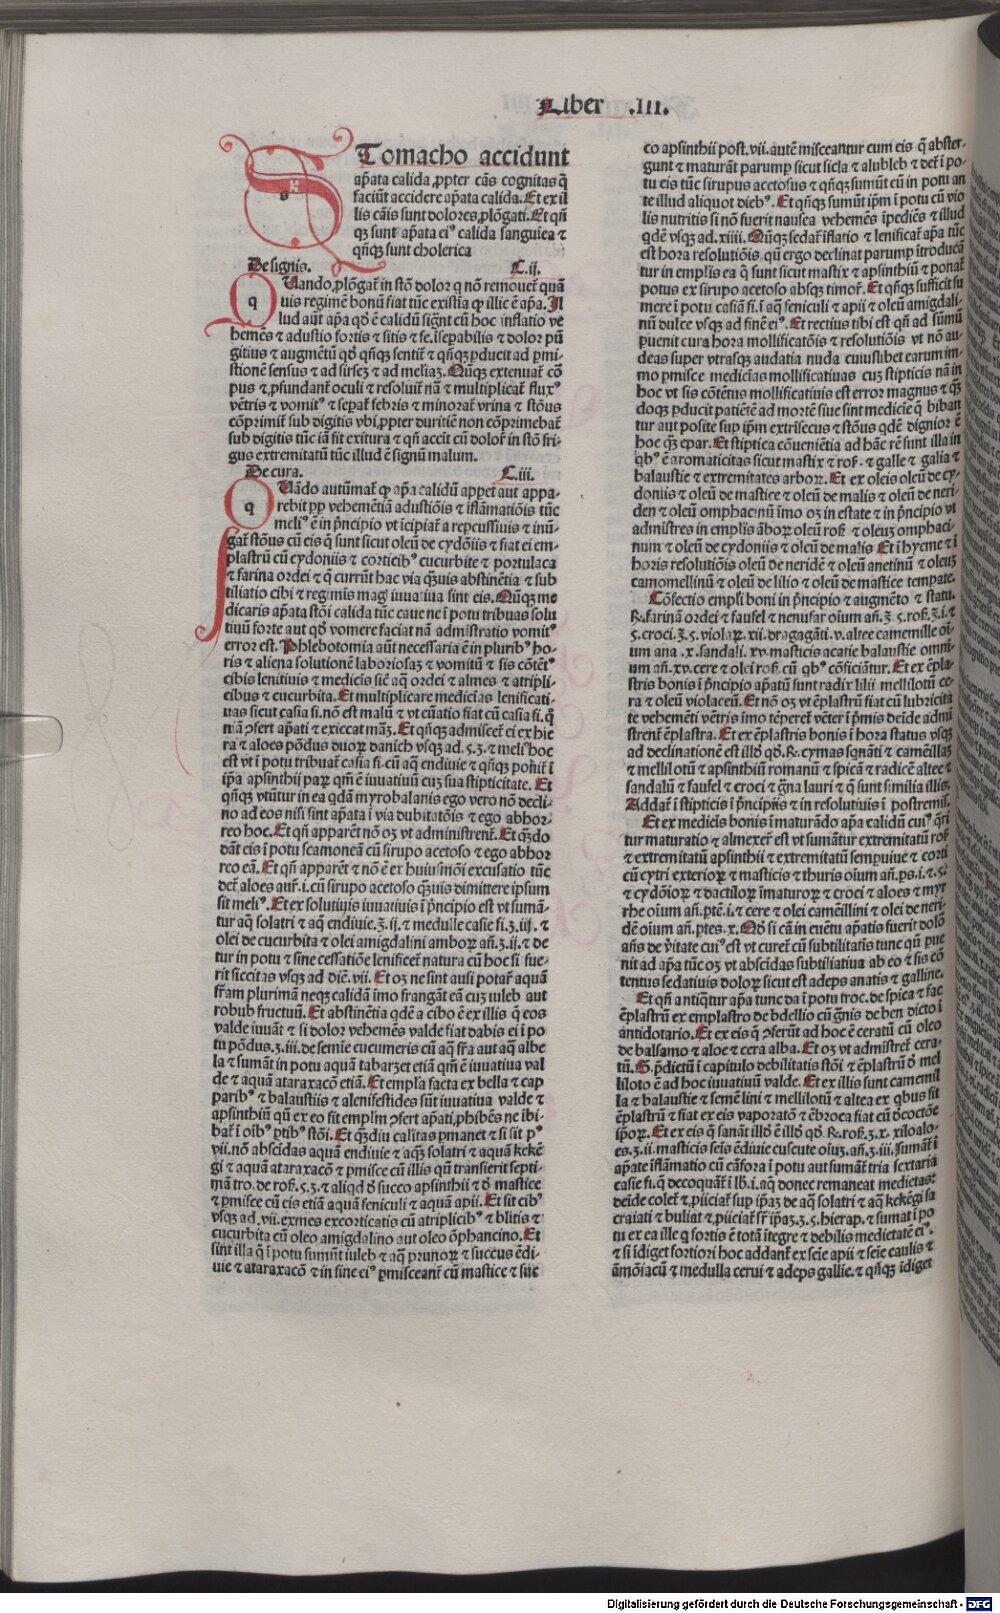 Liber .III.
Tomacho accidunt
ap̃ata calida ꝓpter cãs cognitas q̃
faciũt accidere ap̃ata calida. Et ex il
lis cãis sunt dolores ꝓlõgati. Et qñ
qꝫ sunt ap̃ata eiꝰ calida sanguiea ⁊
qñqꝫ sunt cholerica
De signis. C.ii.
Uando ꝓlõgat̃ in stõ dolor q̃ nõ remouet̃ quã
uis regimẽ bonũ fiat tũc existĩa ꝙ illic ẽ ap̃a. Il
lud aũt ap̃a qđ ẽ calidũ sigñt cũ hoc inflatio ve
hemẽs ⁊ adustio fortis ⁊ sitis ⁊ fe. ĩseꝑabilis ⁊ dolor pũ
gitiuus ⁊ augmẽtũ qđ qñqꝫ sentit̃ ⁊ qñqꝫ ꝑducit ad ꝑmi-
stionẽ sensus ⁊ ad sirsez ⁊ ad meliaꝫ. Nũqꝫ extenuat̃ cõ
pus ⁊ ꝓfundant̃ oculi ⁊ resoluit̃ nã ⁊ multiplicat̃ fluxꝰ
vẽtris ⁊ vomitꝰ ⁊ seꝑat̃ febris ⁊ minorat̃ vrina ⁊ stõus
cõprimit̃ sub digitis vbi ꝓpter duritiẽ non cõprimebat̃
sub digitis tũc iã fit exitura ⁊ qñ accit̃ cũ dolor̃ in stõ fri-
gus extremitatũ tũc illud ẽ signũ malum.
De cura. C.iii.
Uãdo autũmat̃ ꝙ ap̃a calidũ appet̃ aut appa-
rebit pp vehemẽtiã adustiõis ⁊ iflãmatiõis tũc
meliꝰ ẽ in p̃ncipio vt ĩcipiat̃ a repcussiuis ⁊ inũ-
gat̃ stõus cũ eis q̃ sunt sicut oleũ de cydõiis ⁊ fiat ei em-
plastrũ cũ cydoniis ⁊ corticibꝰ cucurbite ⁊ portulaca
⁊ farina ordei ⁊ q̃ currũt hac via q̃uis abstinẽtia ⁊ sub
tiliatio cibi ⁊ regimis mag̃ iuuatiua sint eis. Nũqꝫ me
dicaris ap̃ata stõi calida tũc caue ne ĩ potu tribuas solu
tiuũ forte aut qđ vomere faciat nã admistratio vomitꝰ
error est. Phlebotomia aũt necessaria ẽ in pluribꝰ ho-
ris ⁊ aliena solutionẽ laboriosaꝫ ⁊ vomitũ ⁊ sis cõtẽtꝰ
cibis lenitiuis ⁊ medicis sic̃ aq̃ ordei ⁊ almes ⁊ atripli-
cibus ⁊ cucurbita. Et multiplicare medicias lenificati-
uas sicut casia fi. nõ est malũ ⁊ vt cũatio fiat cũ casia fi. q̃
niã ɔfert ap̃ati ⁊ exiccat maꝫ. Et qñqꝫ admiscet̃ ei ex hie
ra ⁊ aloes põdus duoꝝ danich vsqꝫ ad .5.ʒ. ⁊ meliꝰ hoc
est vt ĩ potu tribuat̃ casia fi. cũ aq̃ endiuie ⁊ qñqꝫ ponit̃ ĩ
ip̃a apsinthij paꝝ qm̃ ẽ iuuatiuũ cuꝫ sua stipticitate. Et
qñqꝫ vtũtur in ea qdã myrobalanis ego vero nõ decli-
no ad eos nisi sint ap̃ata ĩ via dubitatõis ⁊ ego abhor-
reo hoc. Et qñ apparẽt nõ oꝫ vt administrent̃. Et q̃ꝫdo
dãt eis ĩ potu scamoneã cũ sirupo acetoso ⁊ ego abhor
reo eã. Et qñ apparẽt ⁊ nõ ẽ ex huiusmõi excusatio tũc
det̃ aloes aur̃. i. cũ sirupo acetoso q̃ꝫuis dimittere ipsum
sit meliꝰ. Et ex solutiuis iuuatiuis ĩ p̃ncipio est vt sumã-
tur aq̃ solatri ⁊ aq̃ endiuie. ʒ.ij. ⁊ medulle casie fi. ʒ.iij. ⁊
olei de cucurbita ⁊ olei amigdalini amboꝝ añ. ʒ.ij. ⁊ de
tur in potu ⁊ sine cessatiõe lenificet̃ natura cũ hoc si fue-
rit siccitas vsqꝫ ad diẽ .vii. Et oꝫ ne sint ausi potar̃ aquã
fr̃am plurimã neqꝫ calidã imo frangãt eã cuꝫ iuleb aut
robub fructuũ. Et abstinẽtia qdẽ a cibo ẽ ex illis q̃ eos
valde iuuãt ⁊ si dolor vehemẽs valde fiat dabis ei ĩ po
tu põdus .ʒ.iii. de semĩe cucumeris cũ aq̃ fr̃a aut aq̃ albe
la ⁊ sumãt in potu aquã tabarzet etiã qm̃ ẽ iuuatiua val
de ⁊ aquã ataraxacõ etiã. Et empla facta ex bella ⁊ cap
paribꝰ ⁊ balaustiis ⁊ alenifestides sũt iuuatiua valde ⁊
apsinthiũ qñ ex eo fit emplm̃ ɔfert ap̃ati ꝓhibẽs ne ibi-
bat̃ ĩ oĩbꝰ ptibꝰ stõi. Et q̃ꝫdiu calitas ꝑmanet ⁊ si sit pꝰ
vii. nõ abscidas aquã endiuie ⁊ aqꝫ solatri ⁊ aquã kekẽ
gi ⁊ aquã ataraxacõ ⁊ ꝑmisce cũ illis qñ transierit septi-
mã tro. de ros̃ .5.ʒ. ⁊ aliqd đ succo apsinthii ⁊ đ mastice
⁊ ꝑmisce cũ eis etiã aquã feniculi ⁊ aqua apii. Et sit cibꝰ
vsqꝫ ad .vii. ex mes excorticatis cũ atriplicibꝰ ⁊ blitis ⁊
cucurbita cũ oleo amigdalino aut oleo õphancino. Et
sint illa q̃ ĩ potu sumũt iuleb ⁊ aq̃ prunoꝝ ⁊ succus ẽdi-
uie ⁊ ataraxacõ ⁊ in fine eiꝰ ꝑmisceant̃ cũ mastice ⁊ suc
co apsinthii post .vii. autẽ misceantur cum eis q̃ abster-
gunt ⁊ maturãt parumꝑ sicut sicla ⁊ alubleb ⁊ det̃ ĩ po-
tu eis tũc sirupus acetosus ⁊ qñqꝫ sumũt cũ in potu an
te illud aliquot diebꝰ. Et qñqꝫ sumũt ip̃m ĩ potu cũ vio
lis nutritis si nõ fuerit nausea vehemẽs ĩpediẽs ⁊ illud
qdẽ vsqꝫ ad .xiiii. Nũqꝫ sedat̃ iflatio ⁊ lenificat̃ ap̃a tũc
est hora resolutiõis qñ ergo declinat parumꝑ ĩtroducã
tur in emplis ea q̃ sunt sicut mastix ⁊ apsinthiũ ⁊ ponat̃
potus ex sirupo acetoso absqꝫ timor̃. Et qñqꝫ sufficit su
mere ĩ potu casiã fi. ĩ aq̃ feniculi ⁊ apii ⁊ olei amigdali-
nũ dulce vsqꝫ ad finẽ eiꝰ. Et rectius tibi est qñ ad sũmũ
ꝑuenit cura hora mollificatõis ⁊ resolutiõis vt nõ au-
deas super vtrasqꝫ audatia nuda cuiuslibet earum im-
mo ꝑmisce medicias mollificatiuas cuꝫ stipticis nã in
hoc vt sis cõtẽtus mollificatiuis est error magnus ⁊ q̃ꝫ
doqꝫ ꝑducit patiẽtẽ ad mortẽ siue sint medicie q̃ biban
tur aut posite sup ip̃m extrisecus ⁊ stõus qdẽ dignior ẽ
hoc q̃ꝫ epar. Et stiptica cõueniẽtia ad hãc rẽ sunt illa in
qbꝰ ẽ aromaticitas sicut mastix ⁊ ros̃. ⁊ galle ⁊ galia ⁊
balaustie ⁊ extremitates arboꝝ. Et ex oleis oleũ de cy-
doniis ⁊ oleũ de mastice ⁊ oleũ de malis ⁊ oleũ de neri-
den ⁊ oleũ omphacinũ ĩmo oꝫ in estate ⁊ in p̃ncipio vt
admistres in emplis ãboꝝ oleũ ros̃ ⁊ oleuꝫ omphaci-
num ⁊ oleũ de cydoniis ⁊ oleũ de malis Et ĩ hyeme ⁊ ĩ
horis resolutiõis oleũ de neridẽ ⁊ oleũ anetinũ ⁊ oleuꝫ
camomellinũ ⁊ oleũ de lilio ⁊ oleũ de mastice tempate.
Cõfectio empli boni in p̃ncipio ⁊ augmẽto ⁊ statu.
℞. farinã ordei ⁊ faufel ⁊ nenufar oium añ. ʒ.5. ros̃. ʒ.i. ⁊
5. croci. ʒ.5. violaꝝ .xii. dragagãti .v. altee camemille oi-
um ana .x. sandali .xv. masticis acarie balaustie omni-
um añ .xv. cere ⁊ olei ros̃. cũ qbꝰ cõficiãtur. Et ex ẽpla-
stris bonis ĩ p̃ncipio ap̃atũ sunt radix lilii mellilotũ ce-
ra ⁊ oleũ violaceũ. Et nõ oꝫ vt ẽplastrũ fiat cũ lubricita
te vehemẽti vẽtris ĩmo tẽperet̃ vẽter ĩ p̃mis deĩde admi
strent̃ ẽplastra. Et ex ẽplastris bonis ĩ hora status vsqꝫ
ad declinationẽ est illđ qđ. ℞. cymas sq̃nãti ⁊ camẽillaꝫ
⁊ mellilotũ ⁊ apsinthiũ romanũ ⁊ spicã ⁊ radicẽ altee ⁊
sandalũ ⁊ faufel ⁊ croci ⁊ g̃na lauri ⁊ q̃ sunt similia illis.
Addat̃ ĩ stipticis ĩ p̃ncipiis ⁊ in resolutiuis ĩ postremis.
Et ex mediciẽs bonis ĩ maturãdo ap̃a calidũ cuiꝰ q̃ri
tur maturatio ⁊ almexer̃ est vt sumãtur extremitatũ ros̃
⁊ extremitatũ apsinthii ⁊ extremitatũ sempuiue ⁊ corti
cũ cytri exterioꝝ ⁊ masticis ⁊ thuris oium añ. ps .i. ⁊.5.
⁊ cydõioꝝ ⁊ dactiloꝝ ĩmaturoꝝ ⁊ croci ⁊ aloes ⁊ myr
rhe oium añ. ptẽ .i. ⁊ cere ⁊ olei camẽillini ⁊ olei de neri-
dẽ oium añ. ptes .x. Qđ si cã in cuẽtu ap̃atis fuerit dolõ
añs de v̾itate cuiꝰ est vt curet̃ cũ subtilitañs tunc qñ ꝑue
nit ad ap̃a tũc oꝫ vt abscidas subtiliatiua ab eo ⁊ sis cõ
tentus sedatiuis doloꝝ sicut est adeps anatis ⁊ galline.
Et qñ antiq̃tur ap̃a tunc da ĩ potu troc. de spica ⁊ fac
ẽplastrũ ex emplastro de bdellio cũ g̃nis de ben dicto ĩ
antidotario. Et ex eis q̃ ɔferũt ad hoc ẽ ceratũ cũ oleo
de balsamo ⁊ aloe ⁊ cera alba. Et oꝫ vt admistret̃ cera-
tũ. G. p̃dictũ ĩ capitulo debilitatis stõi ⁊ ẽplastrũ đ mel
liloto ẽ ad hoc iuuatiuũ valde. Et ex illis sunt camemil
la ⁊ balaustie ⁊ semẽ lini ⁊ mellilotũ ⁊ altea ex qbus fit
ẽplastrũ ⁊ fiat ex eis vaporatõ ⁊ ẽbroca fiat cũ đcoctõe
ip̃oꝝ. Et ex eis q̃ sanãt illđ ẽ illđ qđ. ℞. ros̃. ʒ.x. xiloalo-
es. ʒ.ii. masticis seis ẽdiuie cuscute oiuꝫ. añ. ʒ.iii. sumat̃ ĩ
ap̃ate ĩflãmatio cũ cãfora ĩ potu aut sumãt̃ tria sextaria
casie fi. q̃ decoquãt̃ ĩ lb̃. i. aq̃ donec remaneat medietas:
deĩde colet̃ ⁊ ꝓiiciat̃ sup ip̃aꝫ de aq̃ solatri ⁊ aq̃ kekẽgi sa
craiati ⁊ buliat ⁊ ꝓiiciat̃ sr̃ ip̃aꝫ .ʒ.5. hierap̃. ⁊ sumat ĩ po
tu ex ea ille q̃ fortis ẽ totã ĩtegre ⁊ debilis medietatẽ eiꝰ.
⁊ si ĩdiget fortiori hoc addant̃ ex seĩe apii ⁊ seĩe caulis ⁊
ãmõiacũ ⁊ medulla cerui ⁊ adeps gallie. ⁊ qñqꝫ ĩdiget
Digitalisierung gefördert durch die Deutsche Forschungsgemeinschaft - DFG